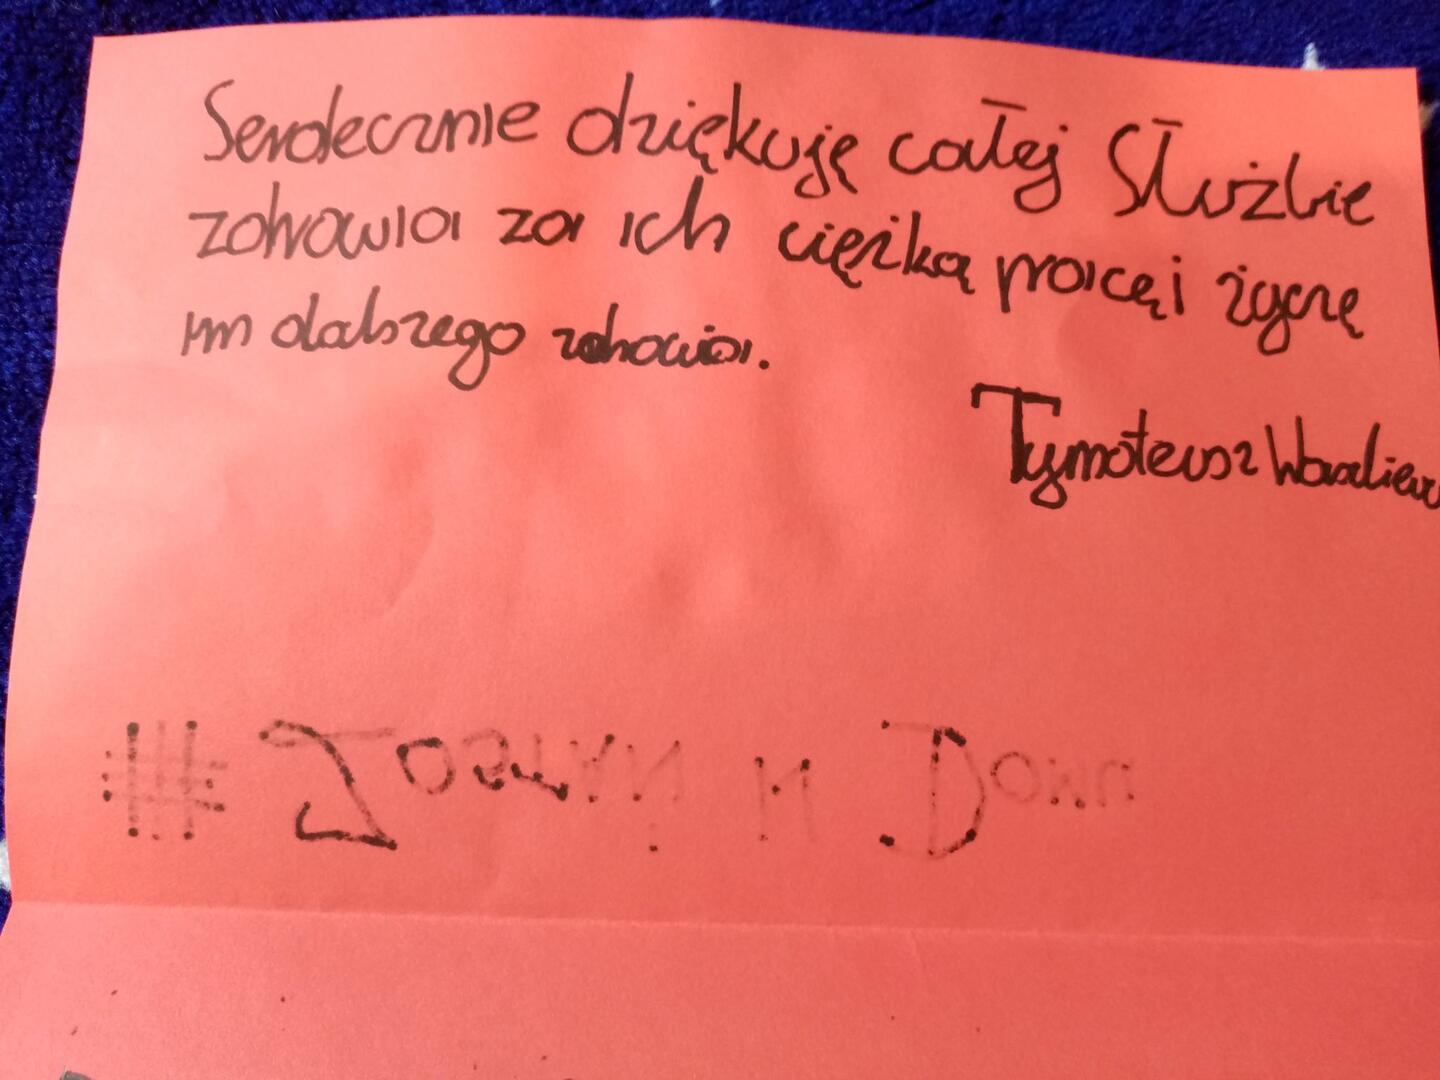 Serdecznie dziękuję całej Służbie
zdrowia za ich ciężką pracę i życzę
im dalszego zdrowia.
Tymoteusz